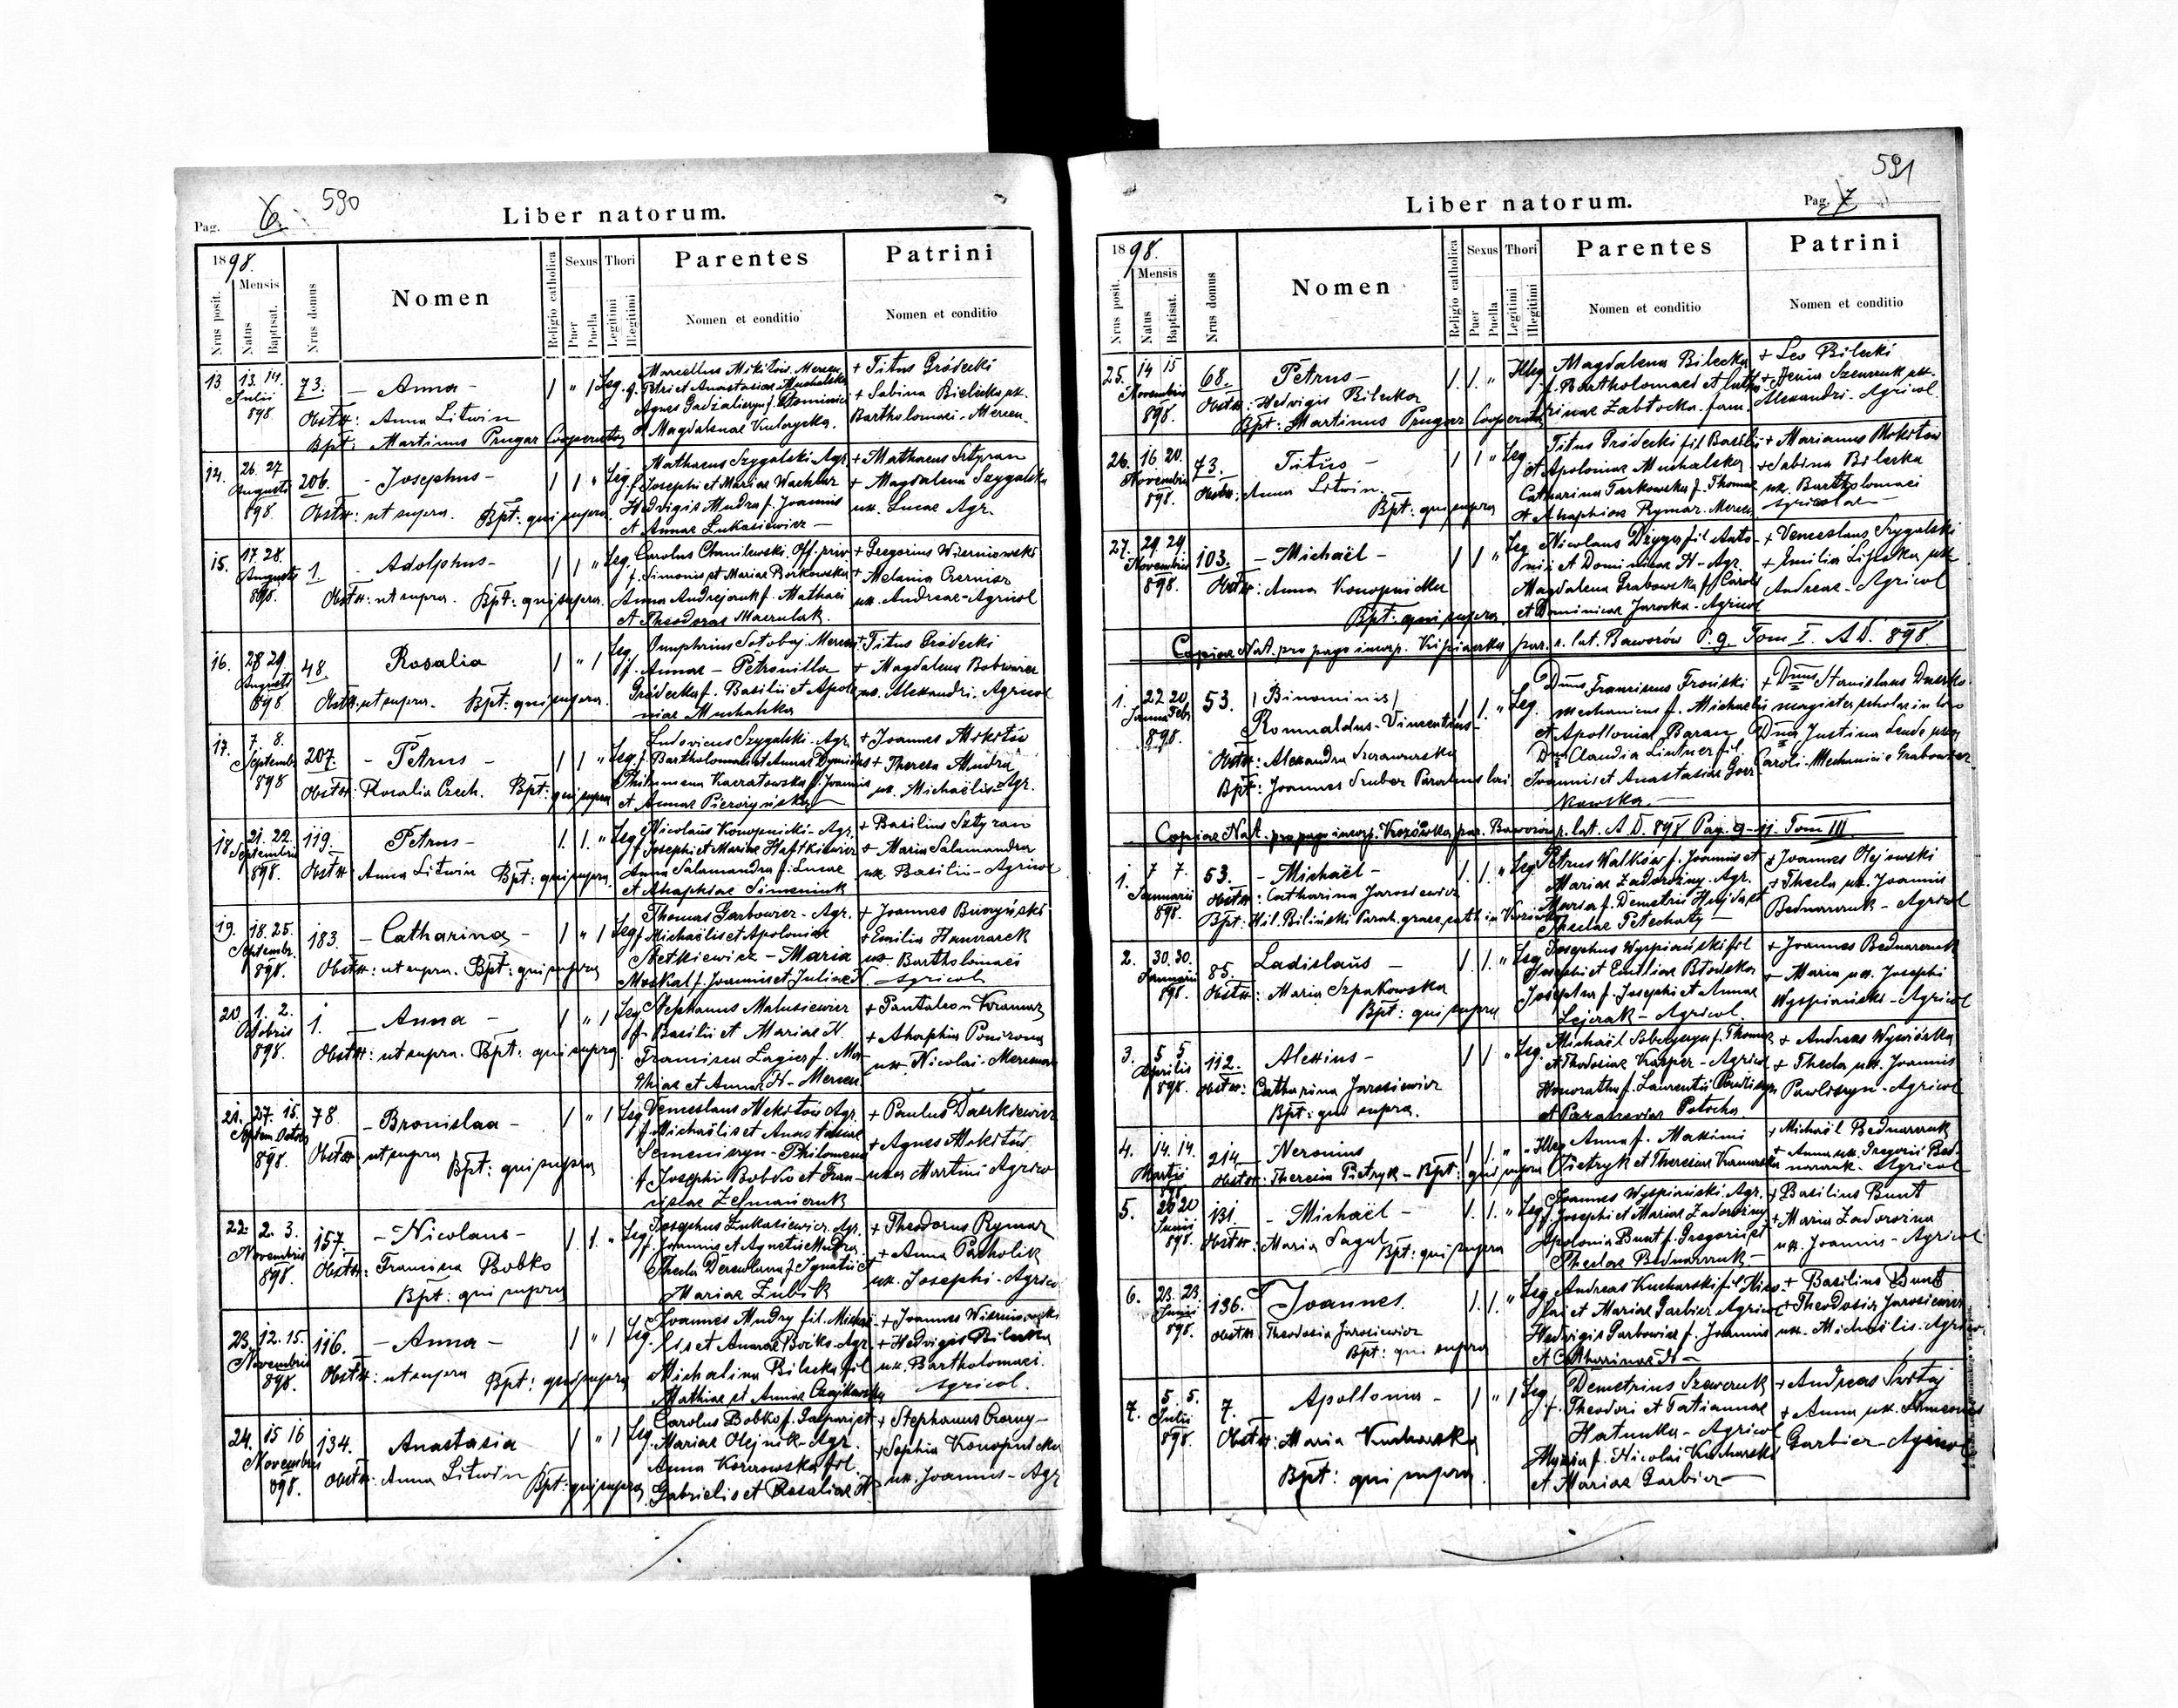 Pag. 6. 590
Liber natorum.
1898.
Nrus posit.
Mensis
Natus
Baptisat.
Nrus domus
Nomen
Religio catholica
Sexus
Puer
Puella
Thori
Legitimi
Illegitimi
Parentes
Nomen et conditio
Patrini
Nomen et conditio
13. 13. 14. Julii 898. 73. - Anna - 1 " 1 Leg.
Obsttr: Anna Litwin
Bpt: Martinus Prugar Cooperator
Marcellus Mikitów. Mercen.
f. Petri et Anastasiae Muchalska
Agnes
Magdalenae
+ Titus Gródecki
+ Sabina Bielecka ux.
Bartholomaei - Mercen.
14. 26. 27 Augusti 898. 206. - Josephus - 1 1 " Leg.
Obsttr: ut supra. Bpt: qui supra.
Mathaeus Szygalski Agr.
f. Josephi et Mariae
Hedvigis Mudra f. Joannis
et Annae Łukasiewicz -
+ Mathaeus Sztyran
+ Magdalena Szygalska
ux. Lucae Agr.
15. 17. 28. Augusti 898. 1. - Adolphus - 1 1 " Leg.
Obsttr: ut supra. Bpt: qui supra.
Carolus Chmilewski. Off. priv
f. Simonis et Mariae Borkowska
Anna Andrejczuk f. Mathaei
et Theodorae
+ Gregorius Wiśniowski
+ Melania
ux. Andreae - Agricol
16. 28 29. Augusti 898 48 Rosalia 1 " 1 Leg.
Obsttr: ut supra. Bpt: qui supra.
Onuphrius Mercen.
f. Annae - Petronilla
Gródecka f. Basilii et Apolo
niae Muchalska
+ Titus Gródecki
+ Magdalena
ux. Alexandri. Agricol
17. 7 8. Septembr. 898 207. - Petrus - 1 1 " Leg.
Obsttr: Rosalia Czech. Bpt: qui supra
Ludovicus Szygalski - Agr.
f. Bartholomaei et Annae
Philomena f. Joannis
et Annae
+ Joannes Mikitów
+ Theresa Mudra
ux. Michaëlis - Agr.
18. 21. 22. Septembris 898. 119. Petrus - 1. 1. " Leg.
Obsttr: Anna Litwin Bpt: qui supra.
Nicolaus Konopnicki - Agr.
f. Josephi et Mariae
Anna Salamandra f. Lucae
et Ahaphiae
+ Basilius Sztyran
+ Maria Salamandra
ux. Basilii - Agricol
19. 18. 25. Septembr. 898. 183. - Catharina - 1 " 1 Leg.
Obsttr: ut supra. Bpt: qui supra
Thomas Garbowicz - Agr.
f. Michaëlis et Apoloniae
- Maria
Moskal f. Joannis et Juliae N.
+ Joannes
+ Emilia
ux. Bartholomaei
Agricol
20 1. 2. Octobris 898. 1. - Anna - 1 " 1 Leg.
Obsttr: ut supra. Bpt: qui supra.
Stephanus Matusiewicz
f. Basilii et Mariae N.
Francisca Lagier f. Ma
thiae et Annae N - Mercen
+ Pantaleon
+ Ahaphia
ux. Nicolai - Mercenar
21. 27. 15. Septem. Octobr. 898. 78. - Bronislaa - 1 " 1 Leg.
Obsttr: ut supra Bpt: qui supra
Venceslaus Mikitów Agr.
f. Michaëlis et Anastasiae
- Philomena
f. Josephi Bobko et Fran-
ciscae
+ Paulus Daszkiewicz
+ Agnes Mikitów.
uxor Martini Agrico
22. 2. 3. Novembris 898. 157. - Nicolaus - 1. 1. " Leg.
Obsttr: Francisca Bobko
Bpt: qui supra
Josephus Łukasiewicz. Agr.
f. Joannis et Agnetis Mudra
Thecla f. Ignatii et
Mariae Zubik
+ Theodorus Rymar
+ Anna
ux. Josephi - Agrico
23. 12. 15. Novembris 898. 116. - Anna - 1 " 1 Leg.
Obsttr: ut supra Bpt: qui supra
Joannes Mudry fil. Michaë-
lis et Annae Agr.
Michalina Bilecka fil
Mathiae et Annae Czajkowska
+ Joannes Wiśniowski
+ Hedvigis Bilecka
ux. Bartholomaei.
Agricol.
24. 15 16 Novembris 898. 134. Anastasia 1 " 1 Leg.
Obsttr: Anna Litwin Bpt: qui supra
Carolus Bobko f. Gaspari et
Mariae Olejnik - Agr.
Anna fil.
Gabrielis et Rosaliae N.
+ Stephanus Czorny -
+ Sophia Konopnicka
ux. Joannis - Agr
591
Liber natorum.
Pag. 7
1898.
Nrus posit.
Mensis
Natus
Baptisat.
Nrus domus
Nomen
Religio catholica
Sexus
Puer
Puella
Thori
Legitimi
Illegitimi
Parentes
Nomen et conditio
Patrini
Nomen et conditio
25. 14 15 Novembris 898. 68. Petrus - 1. 1. " Illeg.
Obsttr: Hedvigis Bilecka
Bpt: Martinus Prugar Cooperator
Magdalena Bilecka
f. Bartholomaei et Catha
rinae Zabłocka - fam.
+ Leo Bilecki
+ Anna ux.
Alexandri - Agricol.
26. 16 20. Novembris 898. 73. Titus - 1 1 " Leg
Obsttr: Anna Litwin.
Bpt: qui supra
Titus Gródecki fil Basilii
et Apoloniae Muchalska
Catharina Tarkowska f. Thomae
et Ahaphiae Rymar. Mercen.
+ Marianus Mikitów
+ Sabina Bilecka
ux. Bartholomaei
Agricolae -
27. 29 29. Novembris 898. 103. - Michaël - 1 1 " Leg
Obsttr: Anna Konopnicka
Bpt: qui supra.
Nicolaus Dżyga fil Anto-
nii et Dominicae N - Agr.
Magdalena Grabowska f. Caroli
et Dominicae Jarocka - Agricol
+ Venceslaus Szygalski
+ Emilia Lipska ux
Andreae - Agricol
Copiae Nat. pro pago incorp. par. r. lat. Baworów P. 9. Tom I. A D. 898.
1. 22 20 Januar Febr 898. 53. / Binominis /
Romualdus - Vincentius - 1. 1. " Leg.
Obsttr: Alexandra
Bpt: Joannes Gruber Parochus loci
Dnus Franciscus
mechanicus f. Michaelis
et Apolloniae Baran
Dna Claudia Lintner fil.
Joannis et Anastasiae Gor-
kowska. -
+ Dnus Stanislaus
magister scholae in loco
Dna Justina uxor
Caroli - Mechanici e Grabowiec
Copiae Nat. pro pago incorp. par. Baworów r. lat. A D. 898 Pag. 9-11 Tom III.
1. 7 7. Januarii 898. 53. - Michaël - 1. 1. " Leg
Obsttr: Catharina Jarosiewicz
Bpt: Hil. Biliński Paroh. graec. cath in
Petrus Walków f. Joannis et
Mariae Zadorożny. Agr.
Maria f. Demetrii et
Theclae
+ Joannes Olejowski
+ Thecla ux. Joannis
Bednarczuk - Agricol
2. 30. 30. Januarii 898. 85. Ladislaus - 1. 1. " Leg
Obsttr: Maria Szpakowska
Bpt: qui supra
Josephus Wyspiański fil
Josephi et Emiliae
Josepha f. Josephi et Annae
- Agricol.
+ Joannes Bednarczuk
+ Maria ux. Josephi
Wyspiański - Agricol
3. 5 5. Aprilis 898. 112. Alexius - 1 1 " Leg
Obsttr: Catharina Jarosiewicz
Bpt: qui supra.
Michaël f. Thomae
et Theodosiae Karper - Agricol
Honorata f. Laurentii
et Parasceviae Potocka
+ Andreas
+ Thecla ux. Joannis
Pawliszyn - Agricol
4. 14. 14. Martii 214 - Neronius 1. 1. " Illeg
Obsttr: Theresia Pietryk - Bpt: qui supra
Anna f. Maximi
Pietryk et Theresiae
+ Michaël Bednarczuk
+ Anna ux. Gregorii Bed-
narczuk - Agricol
5. 20 20 Junii 898. 131. - Michaël - 1. 1. " Leg
Obsttr: Maria Sagul Bpt: qui supra
Joannes Wyspiański. Agr.
f. Josephi et Mariae Zadorożny
Apolonia Bunt f. Gregorii et
Theclae Bednarczuk -
+ Basilius Bunt
+ Maria Zadorożna
ux. Joannis - Agricol
6. 23. 23. Junii 898. 136. Joannes. 1. 1. " Leg
Obsttr: Theodosia Jarosiewicz
Bpt: qui supra
Andreas Kucharski fil Nico-
lai et Mariae Garbier Agricol
Hedvigis Garbowicz f. Joannis
et Catharinae N -
+ Basilius Bunt
+ Theodosia Jarosiewicz
ux. Michaëlis. Agricol
7. 5. 5. Julii 898. 7. Apollonia - 1 " 1 Leg
Obsttr: Maria Kucharska
Bpt: qui supra.
Demetrius Szewczuk
f. Theodori et Tatiannae
Hatunka - Agricol
Maria f. Nicolai Kucharski
et Mariae Garbier -
+ Andreas
+ Anna ux.
Garbier - Agricol